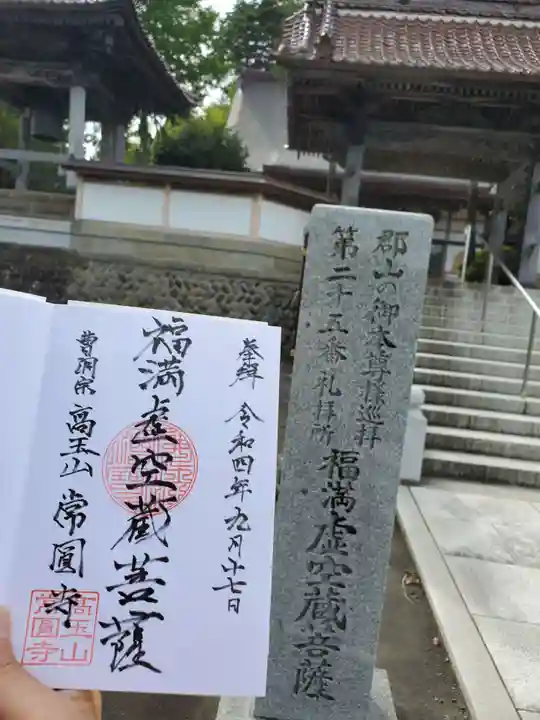 奉拝 令和四年九月十七日
福満虚空蔵菩薩
曹洞宗 高玉山 常圓寺
高玉山
常圓寺
郡山の御本尊様巡拝
第二十五番礼拝所
福満虚空蔵菩薩